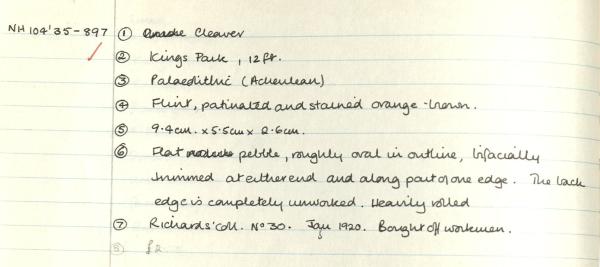 NH 104'35-897 ① Cleaver
② Kings Park, 12ft.
③ Palaeolithic (Acheulean)
④ Flint, patinated and stained orange-brown.
⑤ 9.4cm. x 5.5cm x 2.6cm.
⑥ Flat pebble, roughly oval in outline, bifacially
trimmed at either end and along part of one edge. The back
edge is completely unworked. Heavily rolled
⑦ Richards' Coll. No 30. Jan 1920. Bought off workmen.
⑧ £2